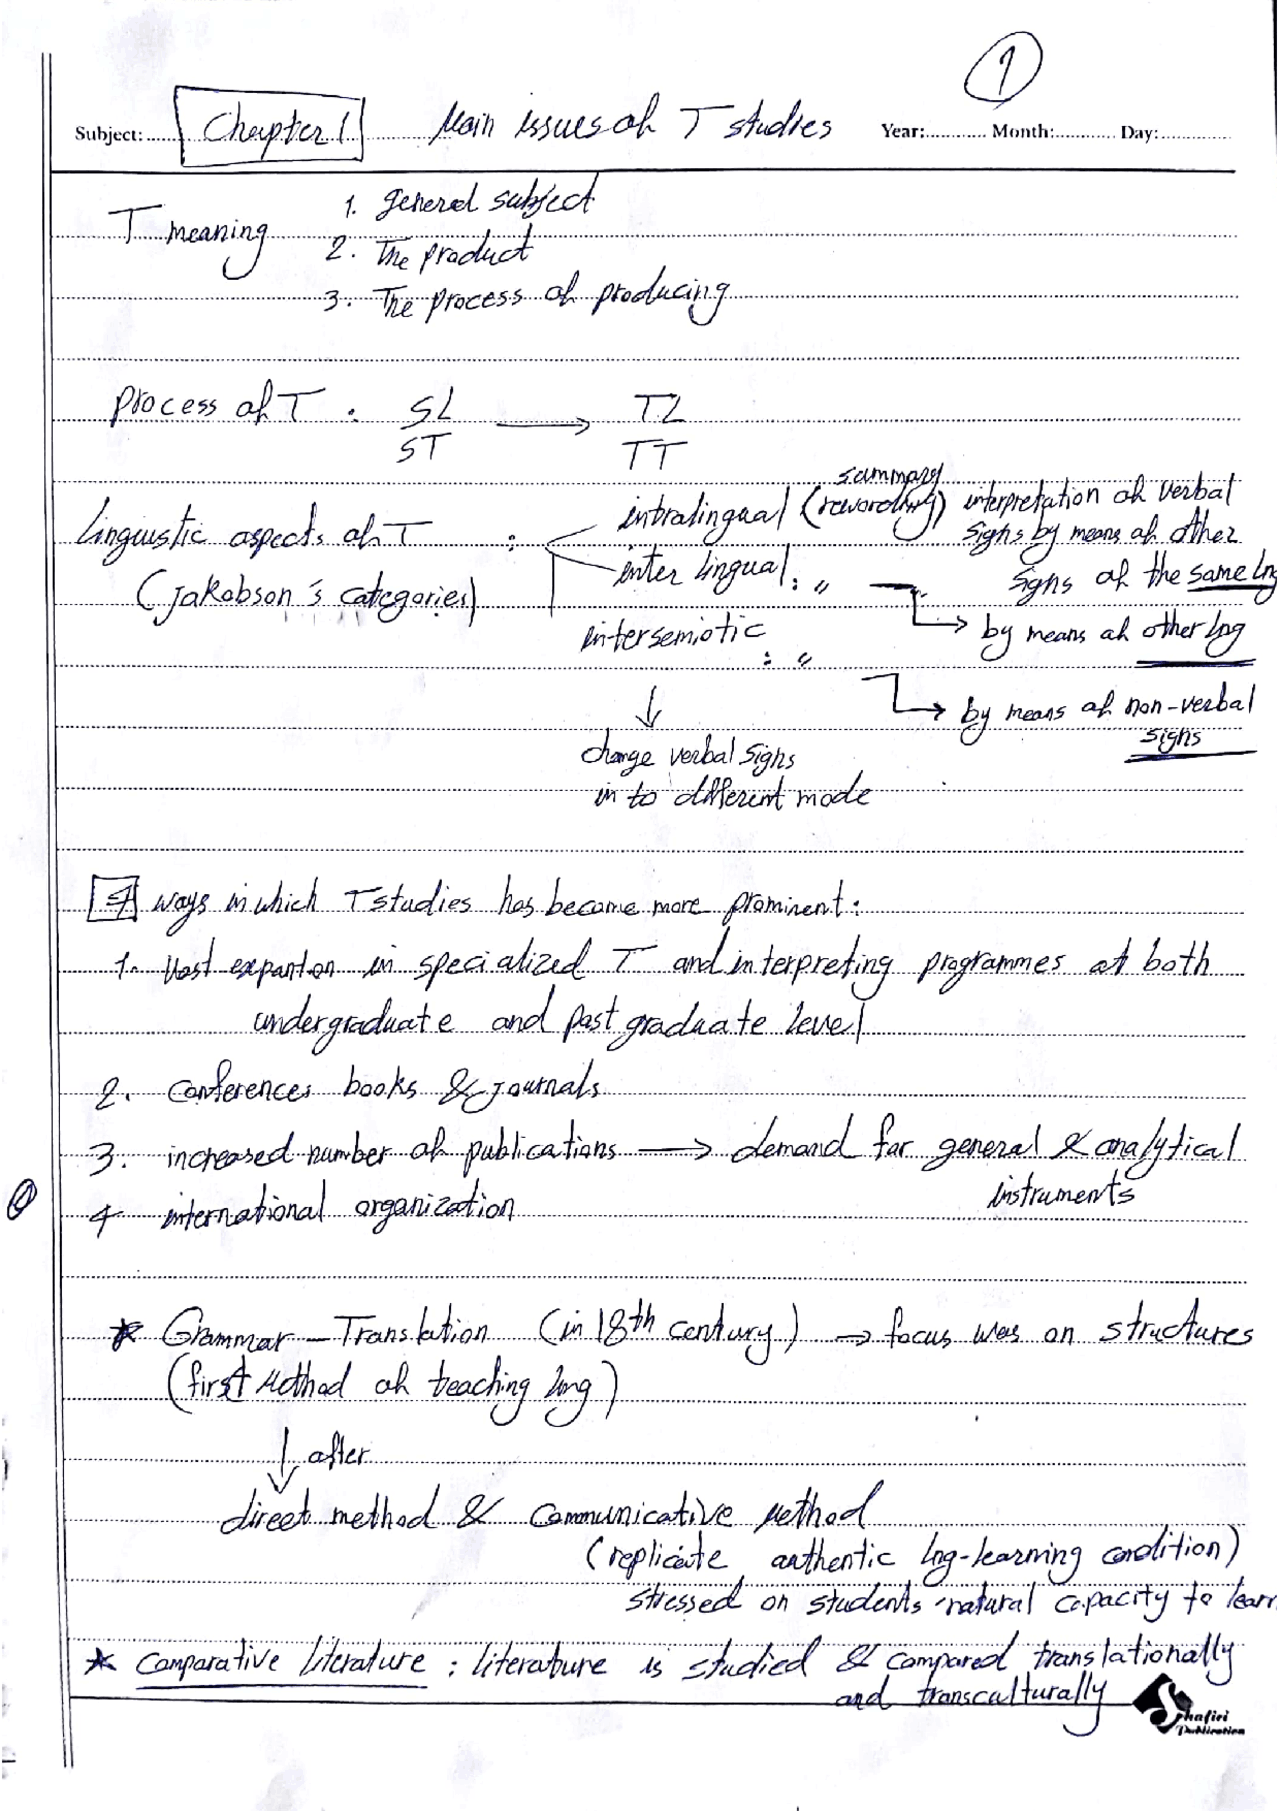 1
Subject: Chapter 1 Main issues of T studies Year: Month: Day:
T meaning
1. general subject
2. The product
3. The process of producing
Process of T : SL → TL
ST TT
Linguistic aspects of T :
(Jakobson's categories)
summary
intralingual (rewording) interpretation of verbal
signs by means of other
signs of the same lng
inter lingual : "
by means of other lng
intersemiotic : "
by means of non-verbal
signs
↓
change verbal signs
in to different mode
4 ways in which T studies has become more prominent:
1. Vast expantion in specialized T and interpreting programmes at both
undergraduate and postgraduate level
2. conferences books & journals
3. increased number of publications → demand for general & analytical
instruments
4 international organization
* Grammar - Translation (in 18th century) → focus was on structures
(first Method of teaching lng)
↓ after
direct method & communicative Method
(replicate authentic lng-learning condition)
stressed on students natural capacity to learn
* comparative literature : literature is studied & compared translationally
and transculturally
Shafiei
Publication